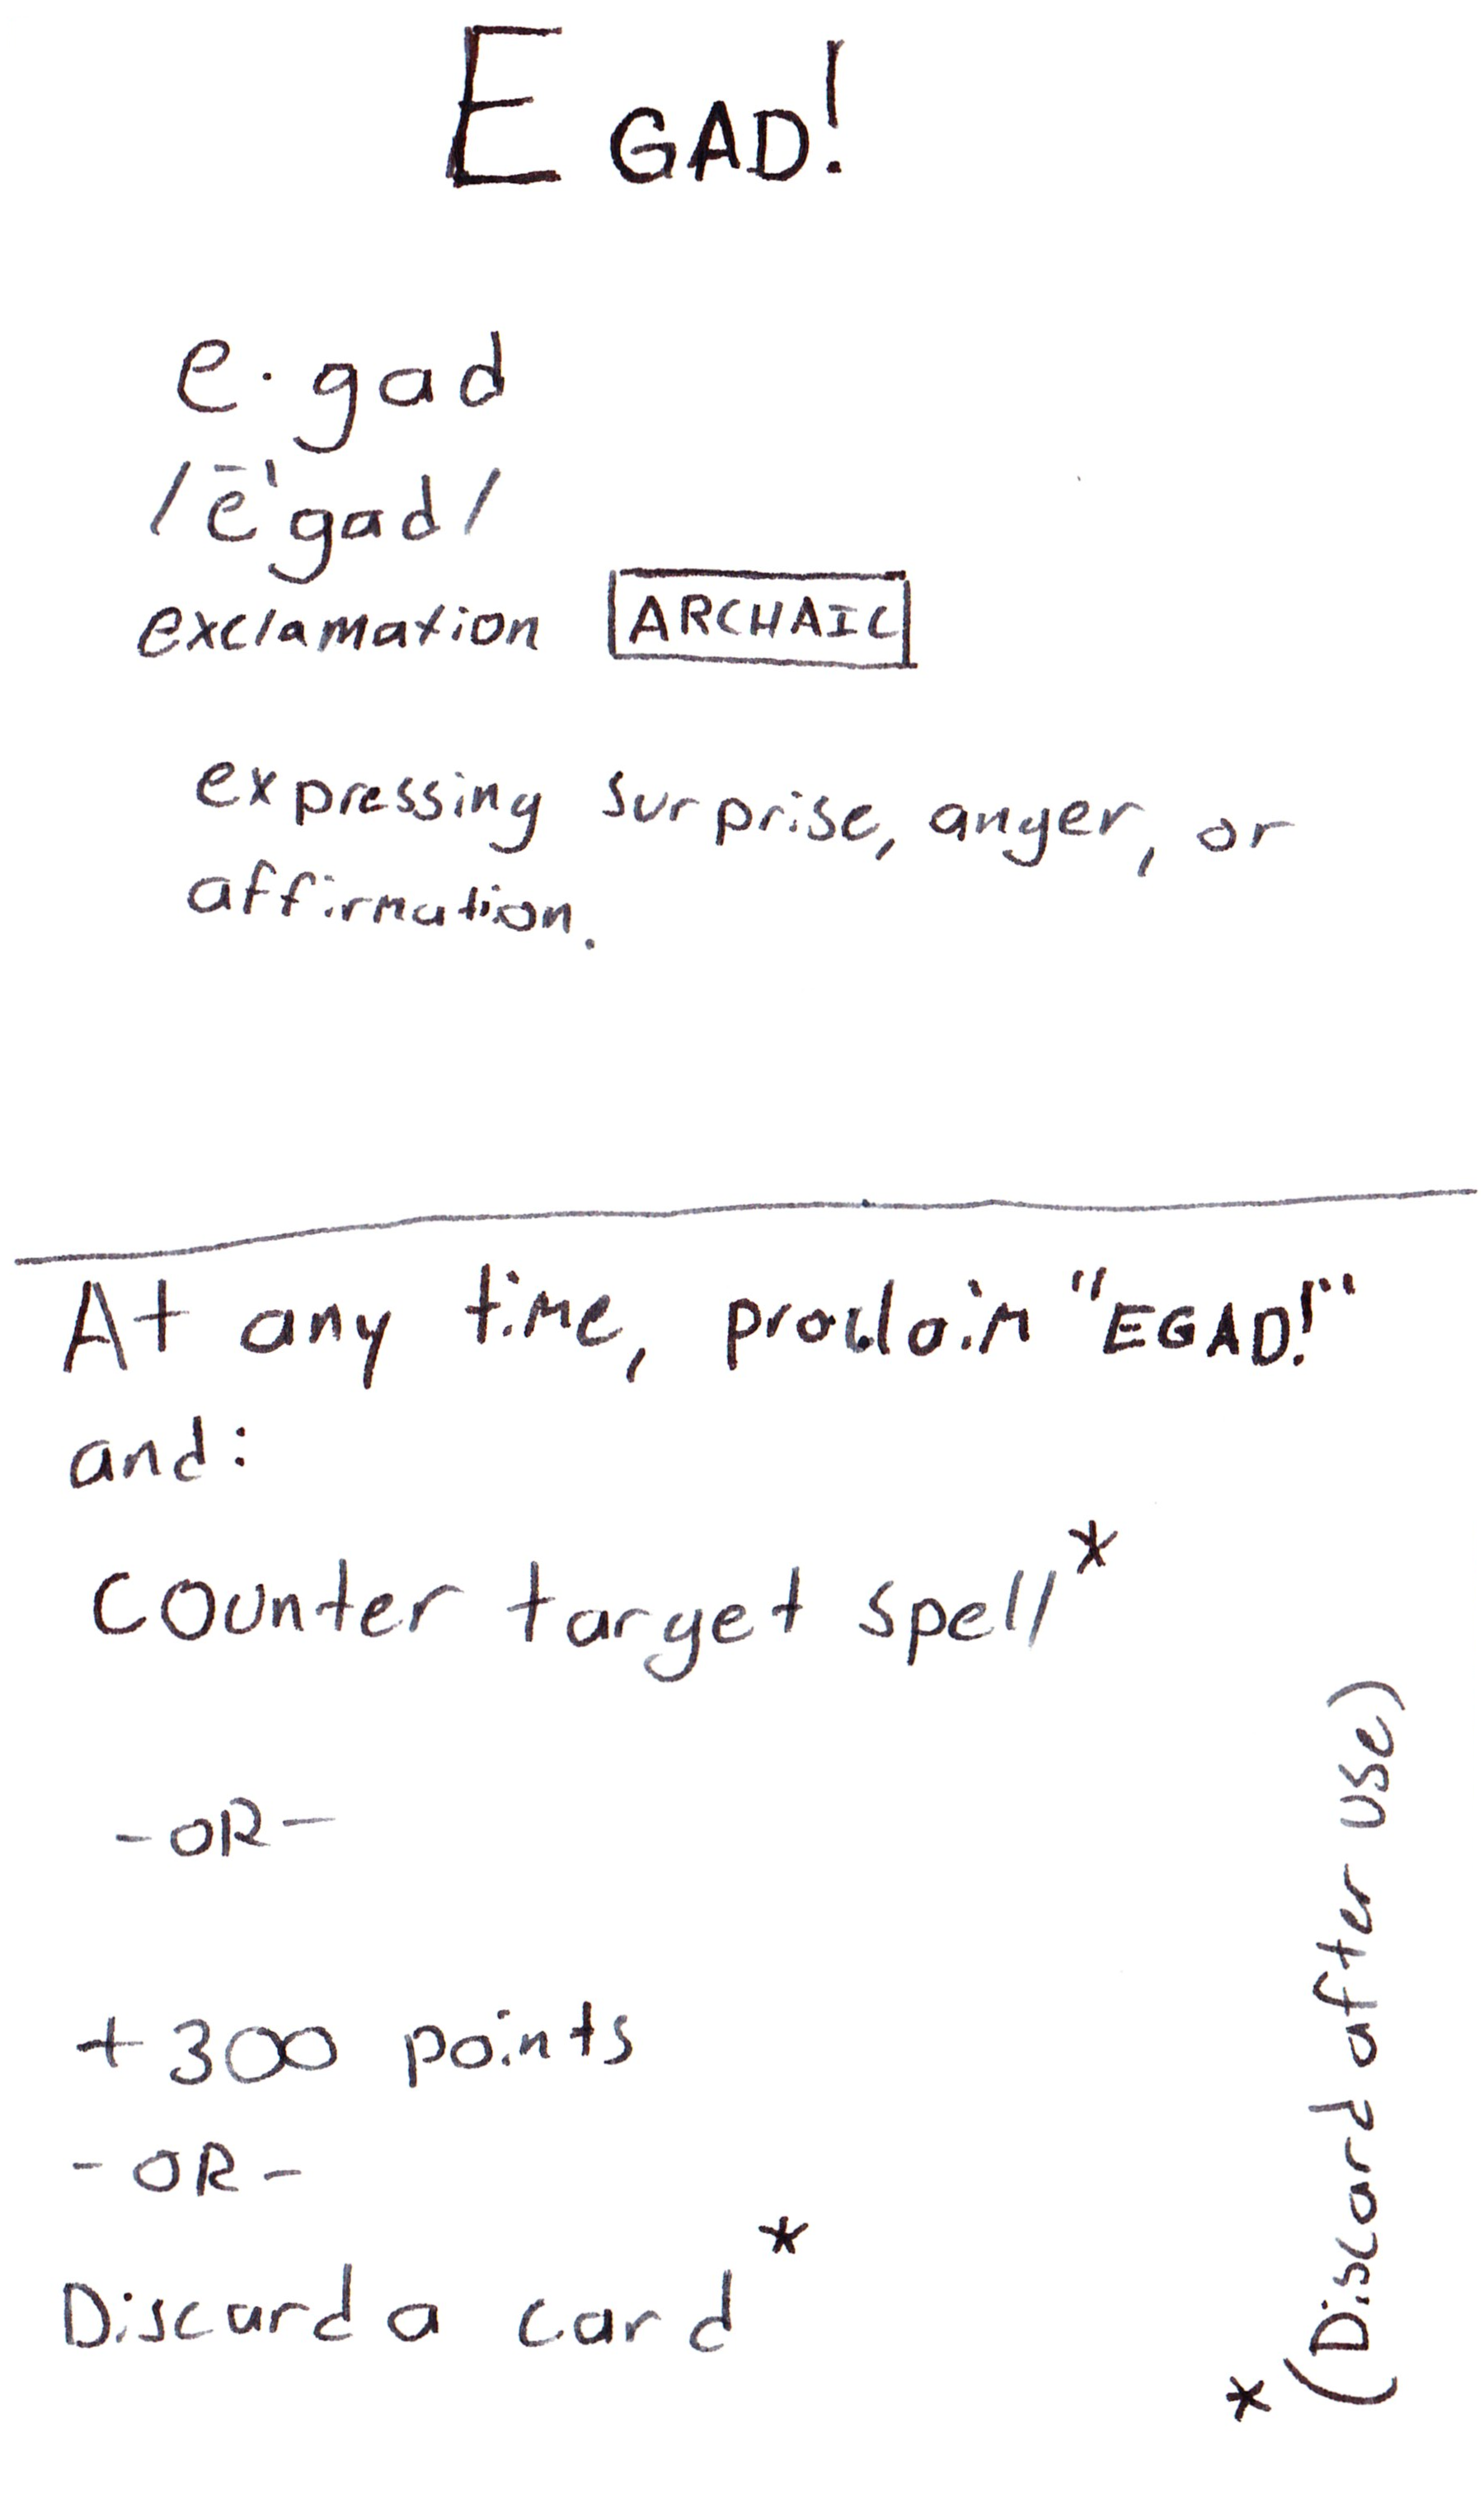 EGAD!
e·gad
/ē'gad/
exclamation ARCHAIC
expressing surprise, anger, or
affirmation.
At any time, proclaim "EGAD!"
and:
Counter target spell*
-OR-
+300 points
-OR-
Discard a card*
*(Discard after use)